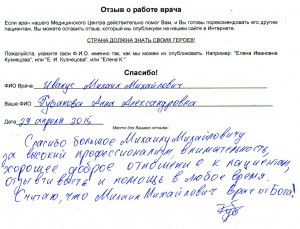 Отзыв о работе врача
Если врач нашего Медицинского Центра действительно помог Вам, и Вы готовы порекомендовать его другим
пациентам, Вы можете оставить отзыв, который мы опубликуем на нашем сайте в Интернете.
СТРАНА ДОЛЖНА ЗНАТЬ СВОИХ ГЕРОЕВ!
Пожалуйста, укажите свои Ф.И.О. именно так, как мы можем их опубликовать. Например: "Елена Ивановна
Кузнецова", или "Е. И. Кузнецова", или "Елена К.".
Спасибо!
ФИО Врача: Ивакус Михаил Михайлович
Ваше ФИО: Анна Александровна
Дата 29 апреля 2015
Место для Вашего отзыва:
Спасибо большое Михаилу Михайловичу
за высокий профессионализм, внимательность,
хорошее доброе отношение к пациентам,
отзывчивость и помощь в любое время.
Считаю, что Михаил Михайлович Врач от Бога!